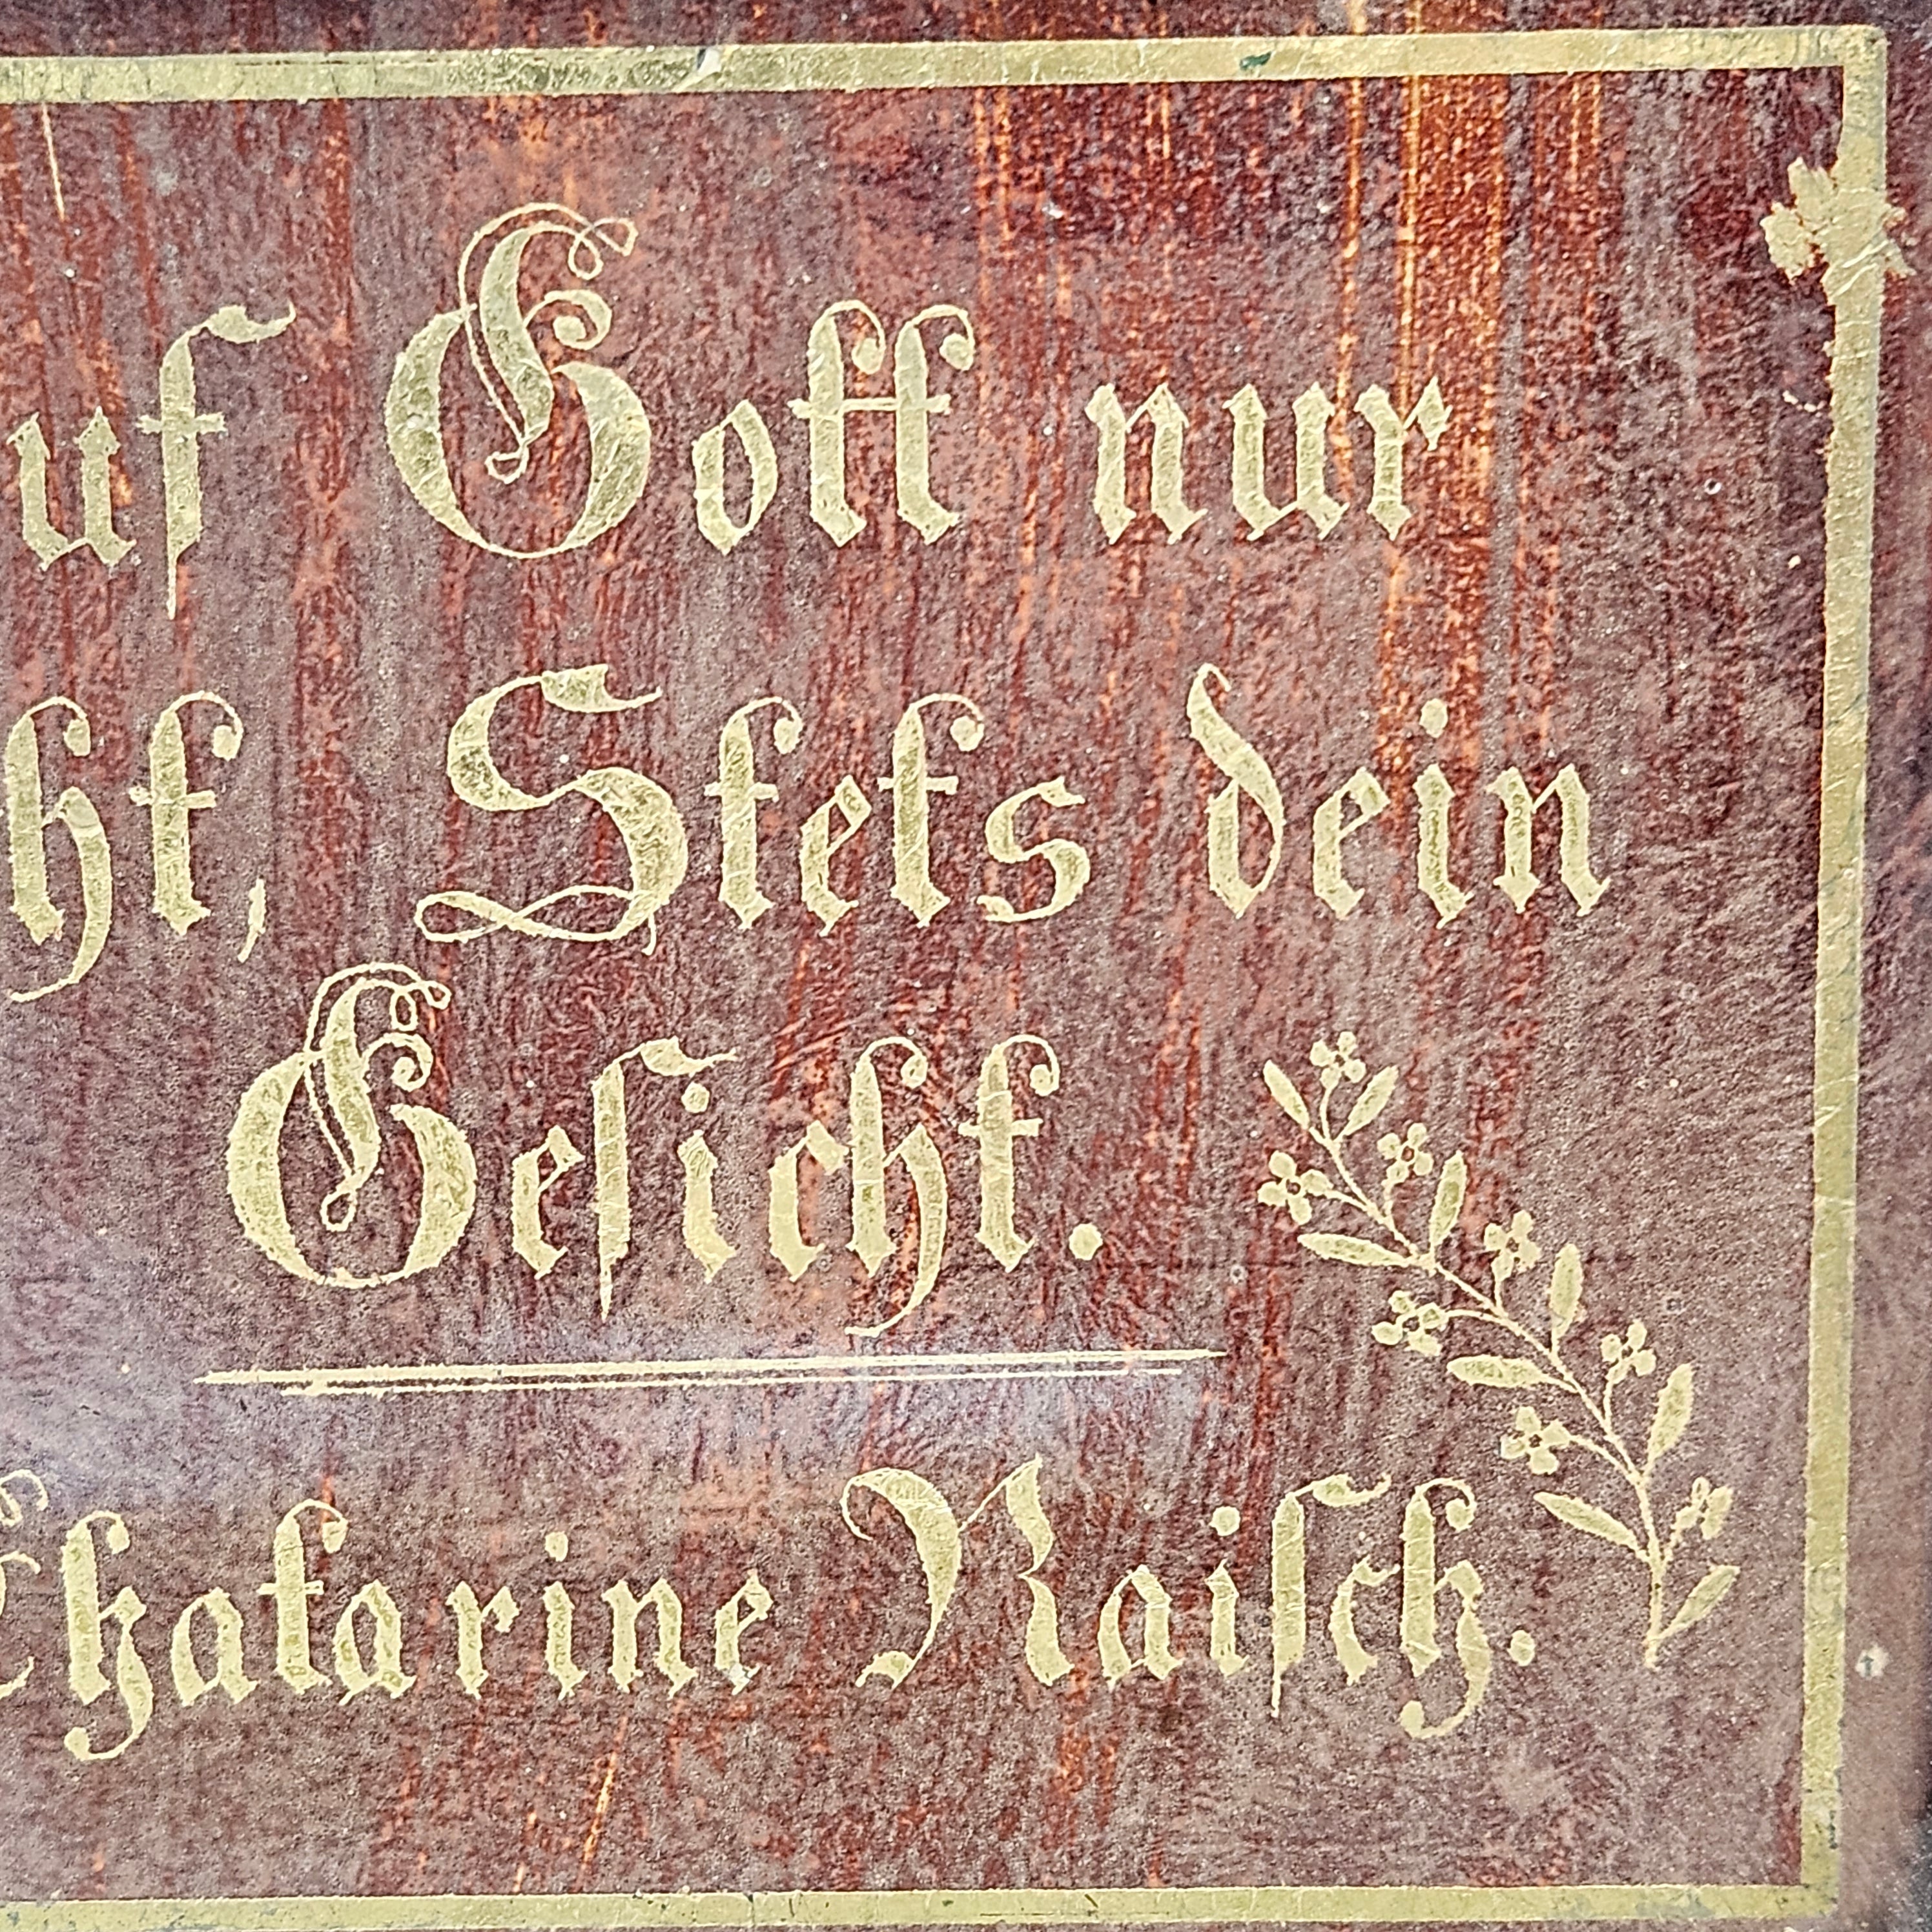 uf Gott nur
ht, Stets dein
Gesicht.
Chatarine Raisch.